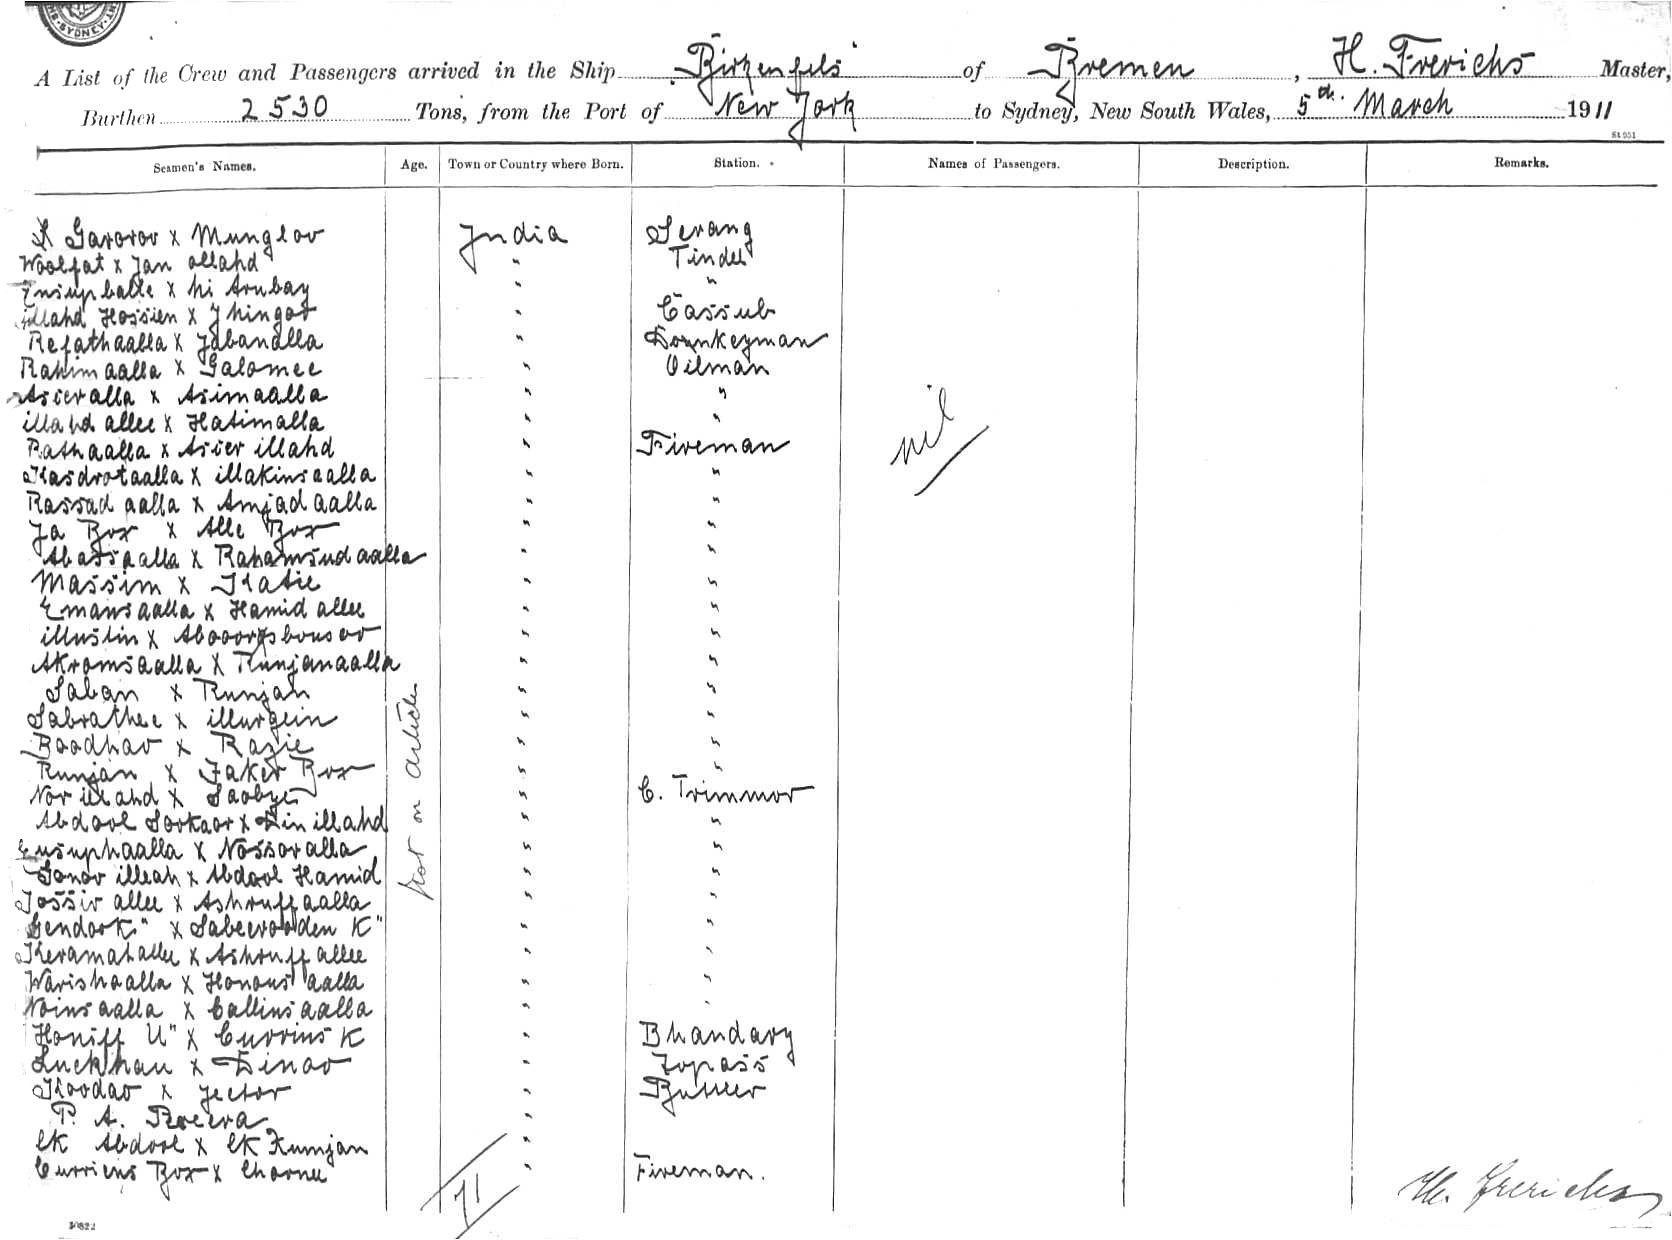 SYDNEY
A List of the Crew and Passengers arrived in the Ship "Birkenfels" of Bremen, H. Frerichs Master,
Burthen 2530 Tons, from the Port of New York to Sydney, New South Wales, 5th March 1911
St 951
Seamen's Names. Age. Town or Country where Born. Station. Names of Passengers. Description. Remarks.
Gavorov x Munglov India Serang
Woolfat x Jan ollahd " Tindel
x hi Arubay " "
illahd Hossien x Jhingor " Cassub
Refathaalla x Jabanalla " Donnkeyman
Rahimaalla x Galomee " Oilman
Assevalla x Asimaalla " "
illahd allee x Hatimalla " "
Rathaalla x Assev illahd " Fireman
Kasdrotaalla x illakinsaalla " "
Rassad aalla x Amjad aalla " "
Ja Box x Alle Box " "
Abassaalla x Rahamsudaalla " "
Massim x Katie " "
Emansaalla x Hamid allee " "
illustin x " "
Akromsaalla x Runjanaalla " "
Saban x Runjan " "
Sabrathee x illurgein " "
Boodhav x Razie " "
Runjan x Faker Box " "
Nor illahd x Saobye " C. Trimmor
Abdool Sorkaor x Din illahd " "
Eusuphaalla x Nossoralla " "
Sonov illeah x Abdool Hamid " "
Jossiv allee x Ashruffaalla " "
Gendook" x Sabeerooden K" " "
Keramatallee x Ashruff allee " "
Warishaalla x Honous aalla " "
Noinsaalla x Callinsaalla " "
Honiff U" x Currins K " Bhandary
Luckhau x Dinov " Topass
Koodav x Jector " Buttler
P. A. "
CK Abdool x CK Rumjan "
Curriens Box x Chornee " Fireman.
not on articles
nil
71
H. Frerichs